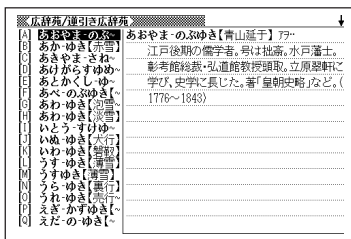 広辞苑/逆引き広辞苑
[A] あおやま-のぶ~
[B] あか-ゆき【赤雪】
[C] あきやま-さね~
[D] あけがらすゆめ~
[E] あとかくし-ゆ~
[F] あべ-のぶゆき【~
[G] あわ-ゆき【泡雪】
[H] あわ-ゆき【淡雪】
[I] いとう-すけゆ~
[J] いぬ-ゆき【犬行】
[K] いわ-ゆき【磐靫】
[L] うす-ゆき【薄雪】
[M] うすゆき【薄雪】
[N] うら-ゆき【裏行】
[O] うれ-ゆき【売行~
[P] えぎ-かずゆき【~
[Q] えだ-の-ゆき【~
あおやま-のぶゆき【青山延于】アヲ‥
江戸後期の儒学者。号は拙斎。水戸藩士。
彰考館総裁・弘道館教授頭取。立原翠軒に
学び、史学に長じた。著「皇朝史略」など。(
1776~1843)